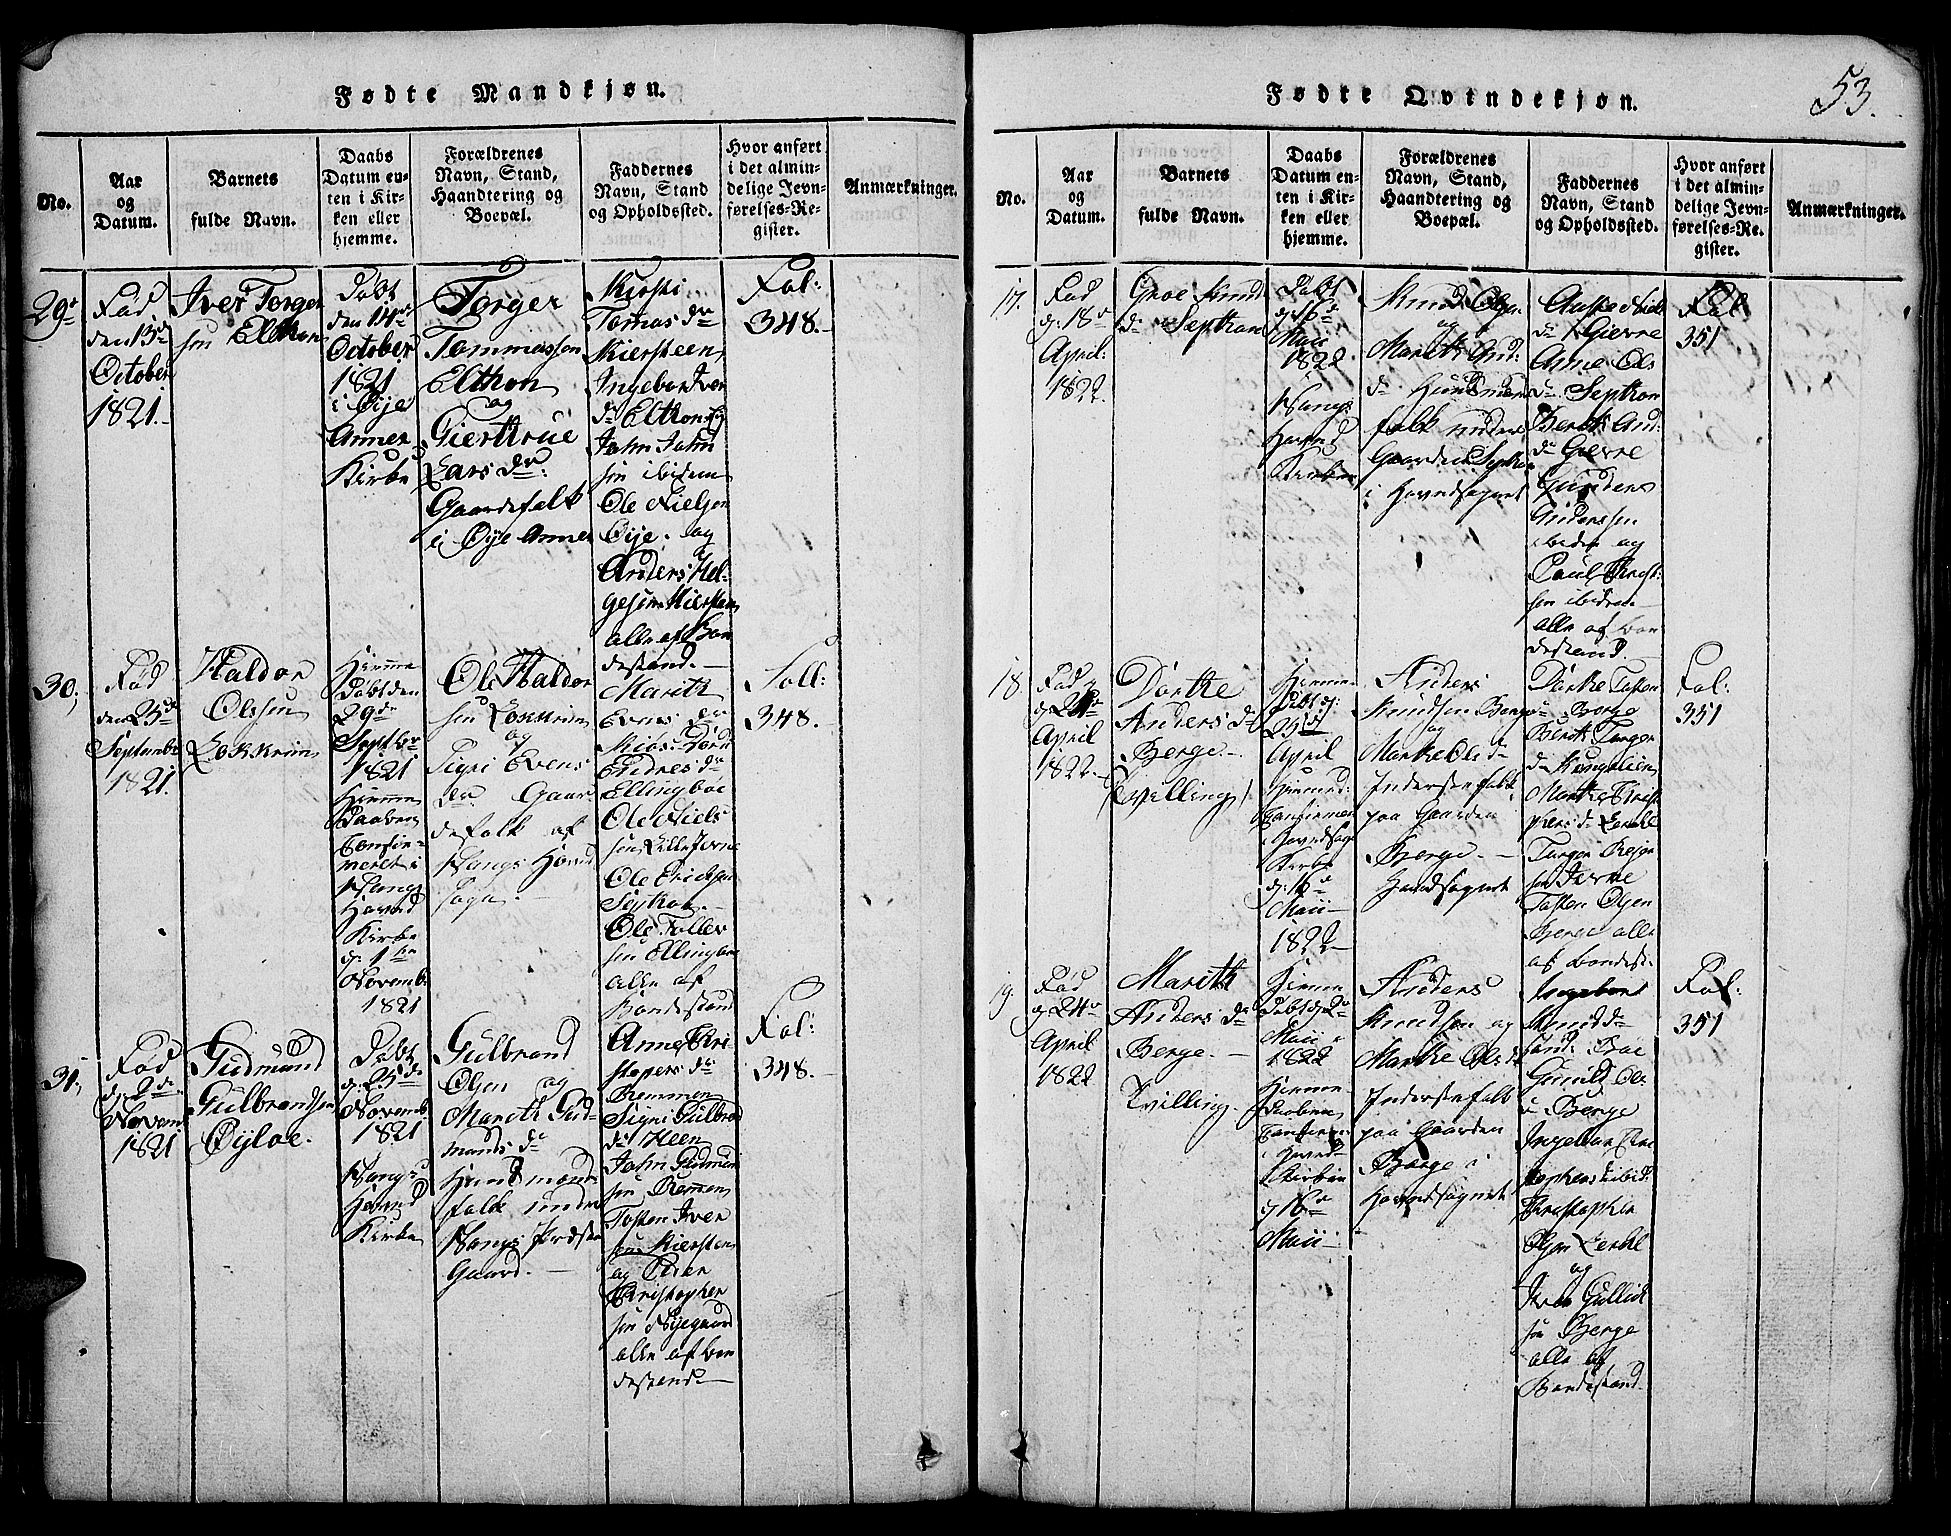 Fødte Mandkjøn.
No.
Aar
og
Datum.
Barnets
fulde Navn.
Daabs
Datum en-
ten i Kir-
ken eller
hjemme.
Forældrenes
Navn, Stand,
Haandtering og
Boepæl.
Faddernes
Navn, Stand
og Opholdssted.
Hvor anført
i det almin-
delige Jevn-
førelses-Re-
gister.
Anmærkninger.
29
Fød
den 13de
October
1821.
Iver Torger
sen Elthon
Døbt
den 14de
October
1821
i Øye
Annex
Kirke
Torger
Tommassen
Elthon
og
Gierttrue
Lars dr.
Gaardefolk
i Øye Annex
Kirsti
Tomas dr
Kiersteen
Ingebor Iver
dr Elthon og
John John
sen ibidem
Ole Nielsen
Øye. og
Anders Hel-
gesen Kiersteen
alle af Bon
destand.
Fol:
348.
30,
Fød
den 23de
Septembr
1821.
Haldor
Olssen
Lokkrim
Hiemme
Døbt den
29de
Septbr
1821
Hiemme
Daaben
Confir-
meret i
Wangs
Hoved
Kirke
d: 1ste
Novemb.
1821
Ole Haldor
sen Lokkrim
og
Sigri Evens
dr. Gaar
defolk af
Wangs Hoved
sogn.
Marith
Evens dr
Endres dr
Ellingboe
Ole Niels
sen Lille Jorne
Ole Ericksen
Ole Toller
sen Ellingboe
alle af
Bondestand
Foll:
348.
31,
Fød
d: 2de
Novemb
1821
Gudmund
Gulbrandsen
Øyloe.
Døbt
d: 23de
Novemb.
1821
Wangs
Hoved
Kirke
Gulbrand
Olsen og
Marith Gud-
munds dr
Huusmands
folk under
Wangs Præste
Gaard.
Anne Chri
stophers dr
Remmen
Signi Gulbrand
dr Heen
John Gudmun
sen Remmen
Tosten Iver
sen Kiersteen
og Peder
Christopher
sen Nyegaard
alle af Bon
destand.
Fol:
348.
Fødte Qvindekjøn.
53.
No.
Aar
og
Datum.
Barnets
fulde Navn.
Daabs
Datum en-
ten i Kir-
ken eller
hjemme.
Forældrenes
Navn, Stand,
Haandtering og
Boepæl.
Faddernes
Navn, Stand
og Opholdssted.
Hvor anført
i det almin-
delige Jevn-
førelses-Re-
gister.
Anmærkninger.
17.
Fød
d: 18de
April:
1822.
Groe Knud
dr Septhon
Døbt
d: 16de
Maii
1822
Wangs
Hoved
Kirke
Knud Olsen
og
Marith And:
dr Huusmands
folk under
Gaarden Septhon
i Hovedsognet
dr Gierre
Anne Ols
dr Septhon
Berith And:
dr Gierre
Anderssen
ibidem og
Paul
sen ibidem
alle af Bon
destand
Fol
351
18
Fød
d: 24de
April
1822.
Dorthe
Anders dr
Berge.
(Tvilling).
Hiemme
døbt d:
29de
April
1822
Kirke
d: 16de
Maii
1822
Anders
Knudsen Berge
og
Marthe Ols dr
Inderstefolk
paa Gaarden
Berge.
Hovedsognet
Dorthe Tosten
dr Berge
Berith Torger
Marthe Christ
phers dr
Torger
sen Jorne
Tosten Olsen
Berge alle
af Bondest.
Fol:
351
19.
Fød
d: 24de
April
1822
Marith
Anders dr
Berge.
Tvilling.
Hiemme
døbt d: 2de
Maii
1822
Hiemme
Daaben
i Hoved
Kirken
d: 16de
Maii
Anders
Knudsen og
Marthe Ols dr
Inderstefolk
paa Gaarden
Berge i
Hovedsognet
Ingebor
Knud dr
Gunild Ols
dr Berge
Ingebor Chri
stophers dr ibid:
Christopher
Olsen
og
Iver Gullick
sen Berge
alle af
Bondestand.
Fol:
351